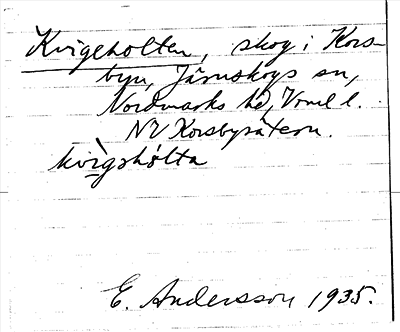 Kvigeholten, skog i Kors-
byn, Järnskogs sn,
Nordmarks hd, Vrml l.
NV Korsbysätern.
kvìgshòlta
E. Andersson 1935.